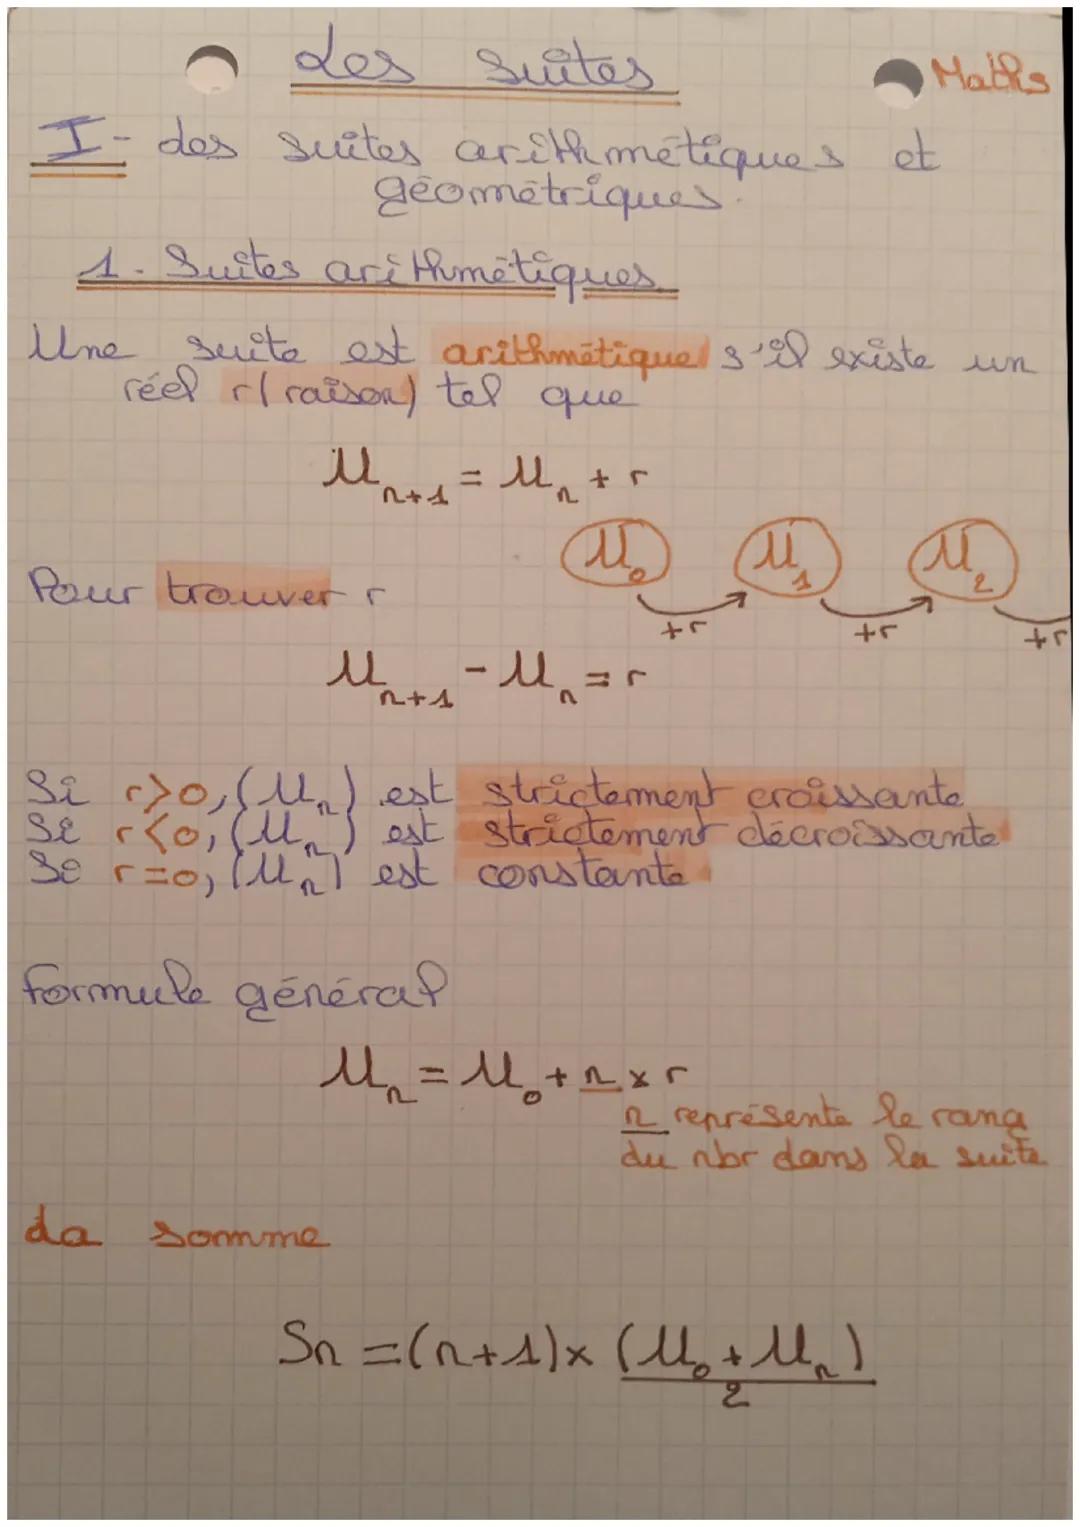 Les Suites
Maths
I - Les suites arithmétiques et
géométriques.
1. Suites arithmétiques
Une suite est arithmétique s'il existe un
réel r (raison) tel que
Uₙ₊₁ = Uₙ + r
U₀ U₁ U₂
Pour trouver r
+r +r +r
Uₙ₊₁ - Uₙ = r
Si r>0, (Uₙ) est strictement croissante
Si r<0, (Uₙ) est strictement décroissante
Si r=0, (Uₙ) est constante
Formule général
Uₙ = U₀ + n × r
n représente le rang
du nbr dans la suite
La somme
Sn = (n+1) × (U₀ + Uₙ)
2